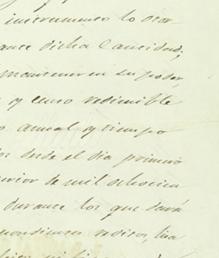 incremenso lo otor
ance dicha Cantidad,
mantener en su poder,
y censo redimible
o anual y tiempo
os desde el dia primero
erior de mil ochocien
durante los que dará
ondientes reditos, ha